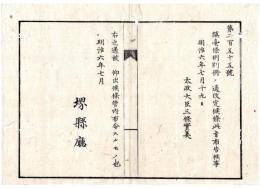 第二百五十五號
鑛毫條例別冊ノ通改定候條此旨布告候事
明治六年七月十九日
太政大臣三條實美
右之通被 仰出候條管内布令スルモノ也
明治六年七月
堺縣廳